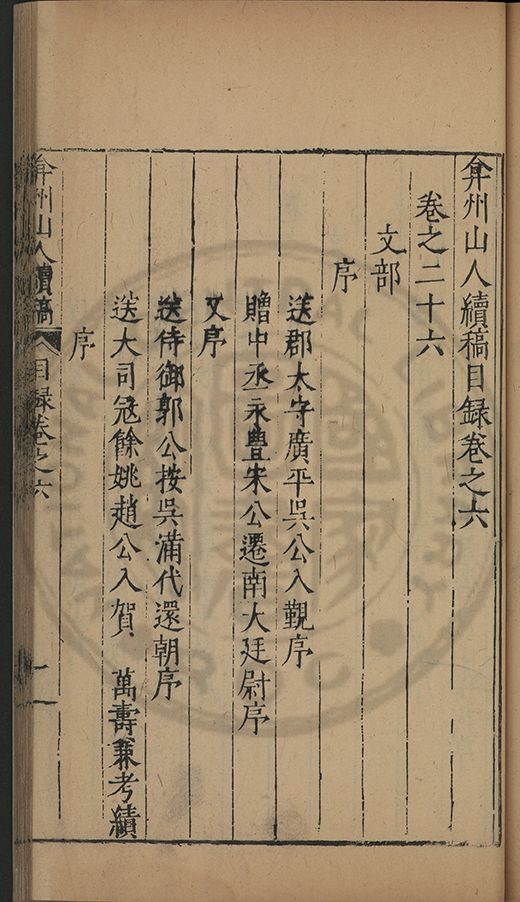 弇州山人續稿目録卷之六
卷之二十六
文部
序
送郡大守廣平吳公入覲序
贈中丞永豊朱公遷南大廷尉序
又序
送侍御郭公按吳滿代還朝序
送大司冦餘姚趙公入賀 萬壽兼考績
序
弇州山人續稿 目録卷之六 一